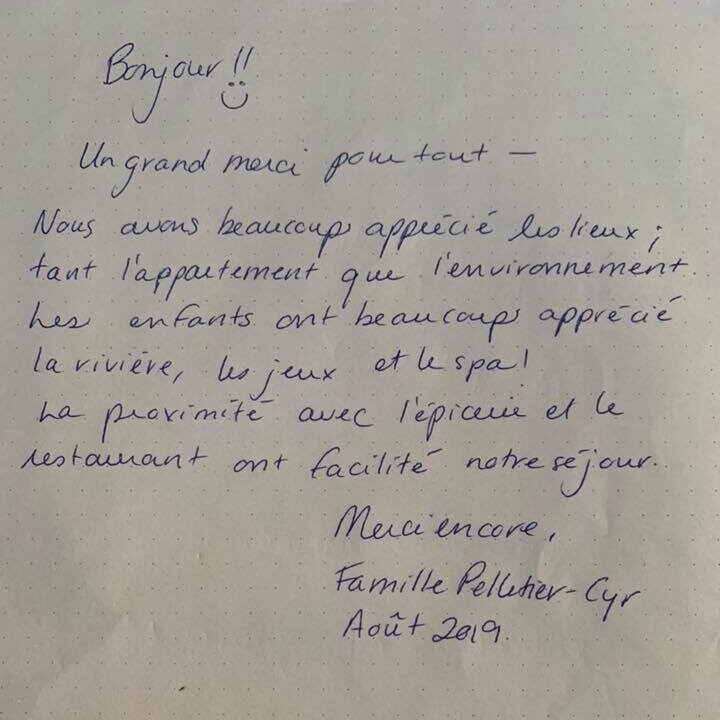 Bonjour !!
Un grand merci pour tout —
Nous avons beaucoup apprécié les lieux ;
tant l'appartement que l'environnement.
Les enfants ont beaucoup apprécié
la rivière, les jeux et le spa !
La proximité avec l'épicerie et le
restaurant ont facilité notre séjour.
Merci encore,
Famille Pelletier-Cyr
Août 2019.